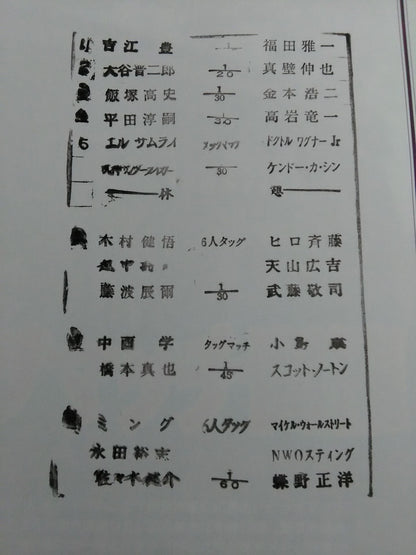 吉江 豊 福田雅一
大谷晋二郎 1/20 真壁伸也
飯塚高史 1/30 金本浩二
平田淳嗣 1/30 高岩竜一
5 エル サムライ タッグマッチ ドクトル ワグナー Jr
1/30 ケンドー・カ・シン
休 憩
木村健悟 6人タッグ ヒロ斉藤
天山広吉
藤波辰爾 1/30 武藤敬司
中西 学 タッグマッチ 小島
橋本真也 1/45 スコット・ノートン
ミング 6人タッグ マイケル・ウォールストリート
永田裕志 NWOスティング
佐々木健介 1/60 蝶野正洋